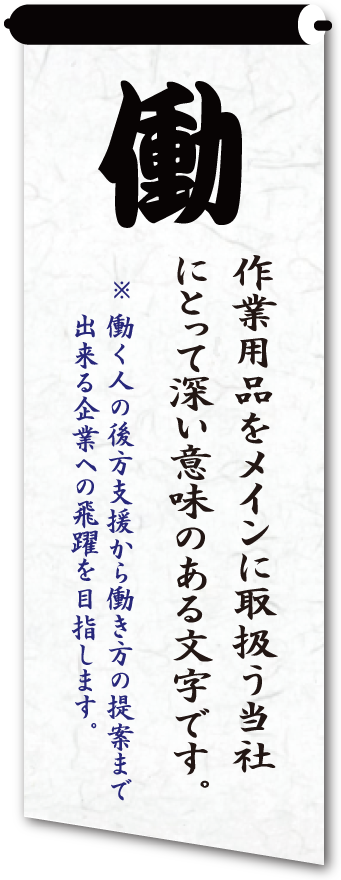 働
作業用品をメインに取扱う当社
にとって深い意味のある文字です。
※働く人の後方支援から働き方の提案まで
出来る企業への飛躍を目指します。